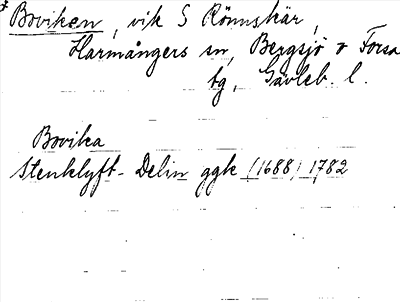 Boviken, vik S Rönnskär,
Harmångers sn, Bergsjö o Forsa
tg, Gävleb. l.
Bovika
Stenklyft - Delin ggk (1688) 1782